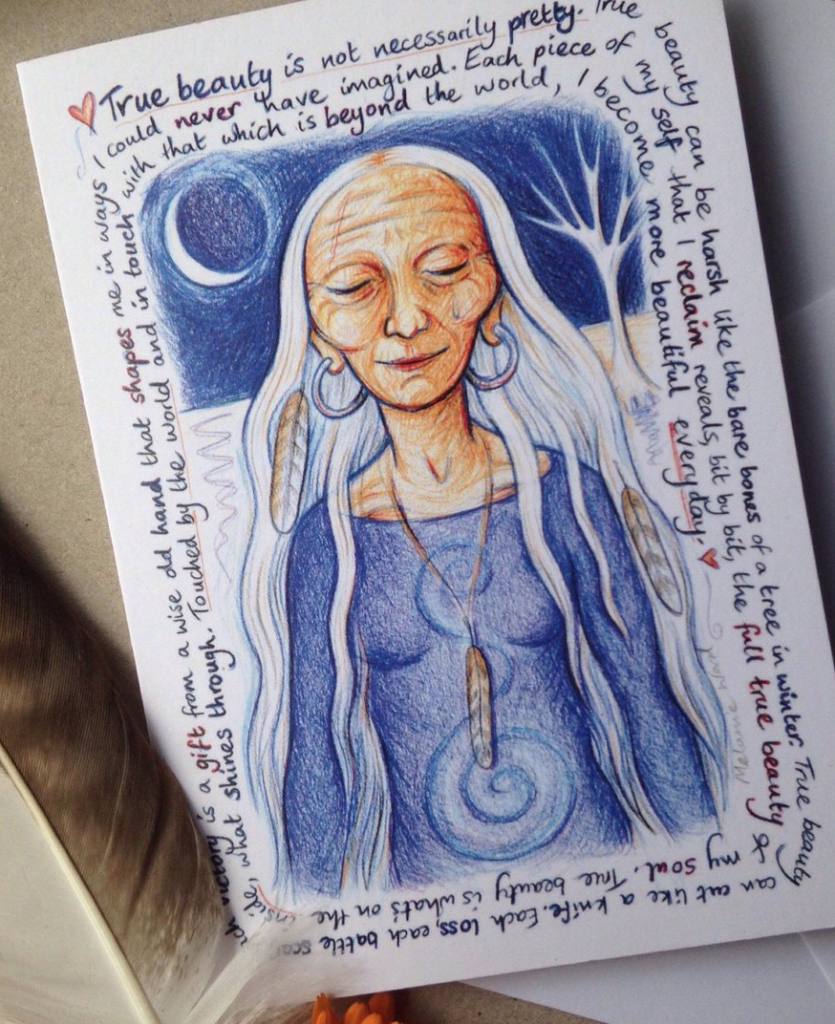 True beauty is not necessarily pretty. True
beauty can be harsh like the bare bones of a tree in winter. True beauty
can cut like a knife. Each loss, each battle scar
victory is a gift from a wise old hand that shapes me in ways
I could never have imagined. Each piece of
my self that I reclaim reveals, bit by bit, the full true beauty &
my soul. True beauty is what's on the inside,
what shines through. Touched by the world and in touch
with that which is beyond the world, I
become more beautiful everyday.